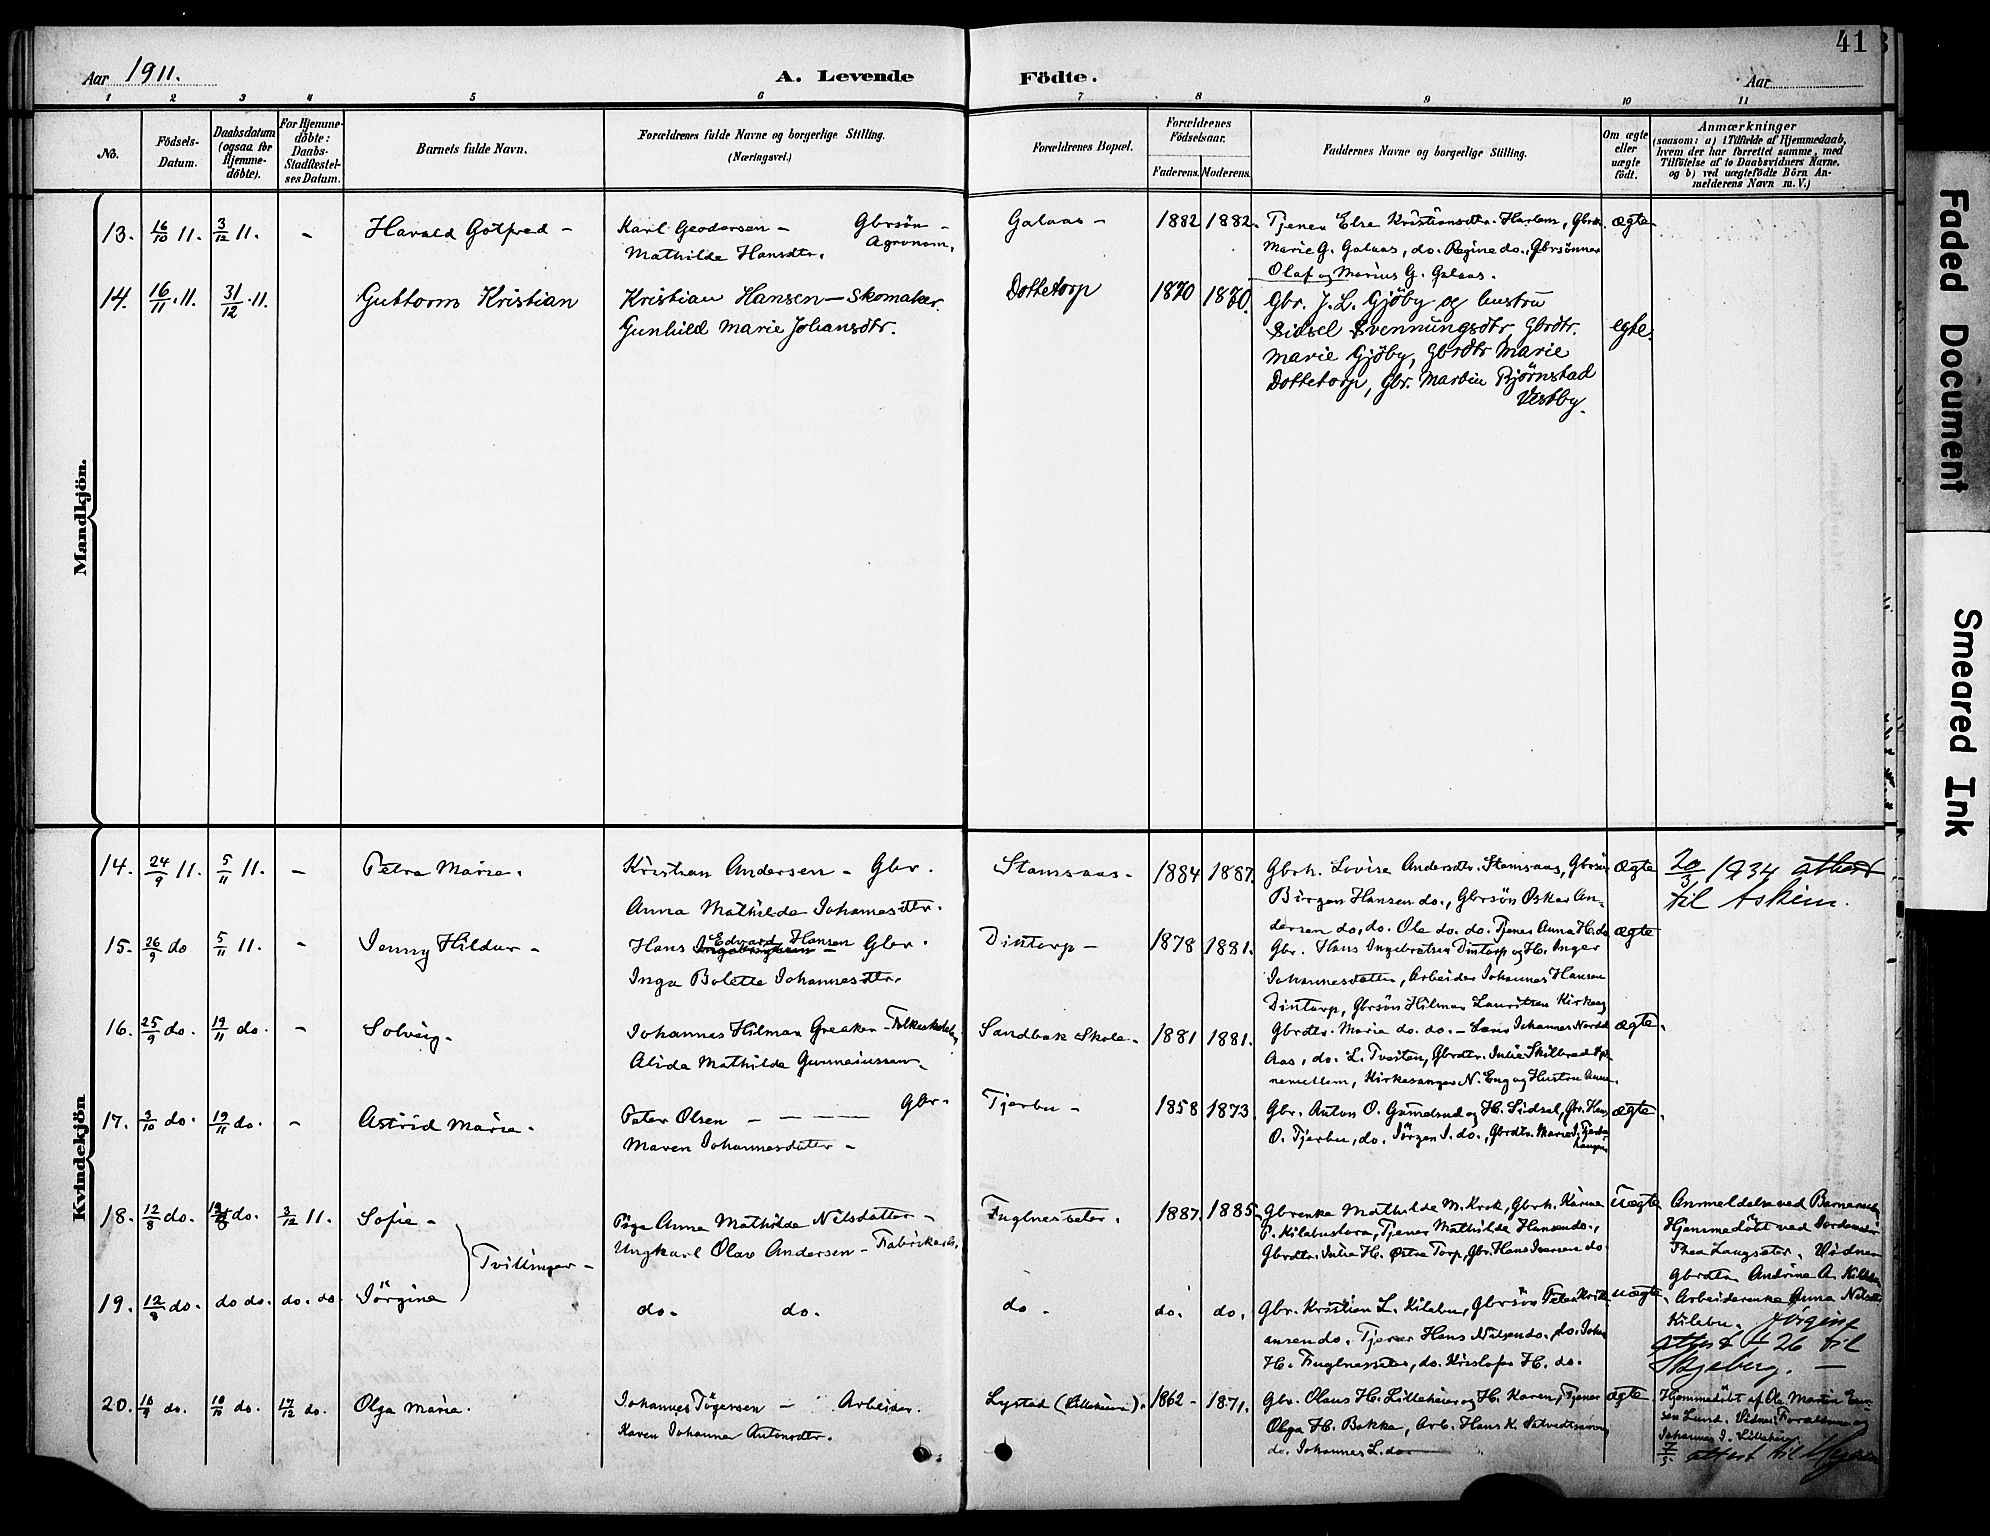 41
Aar 1911.
A. Levende
Födte.
Aar
1 2 3 4 5 6 7 8 9 10 11
No.
Födsels-Datum.
Daabsdatum (ogsaa for Hjemme-döbte).
For Hjemme-döbte: Daabs-Stadfæstel-ses Datum.
Barnets fulde Navn.
Forældrenes fulde Navne og borgerlige Stilling.
(Næringsvei.)
Forældrenes Bopæl.
Forældrenes Födselsaar.
Faderens. Moderens.
Faddernes Navne og borgerlige Stilling.
Om ægte eller uægte født.
Anmærkninger
(saasom: a) i Tilfælde af Hjemmedaab,
hvem der har forrettet samme, med
Tilföielse af to Daabsvidners Navne,
og b) ved uægtefödte Börn An-
melderens Navn m. V.)
Mandkjön.
13. 16/10 11. 3/12 11. - Harald Gotfred - Karl Geodersen - Gbrsön - Agronom.
Mathilde Hansdtr.
Galaas - 1882 1882. Tjener Else Kristiansdtr. Harlem, Gbrdtr. ægte
Marie G. Galaas, do. Regine do., Gbrsönner
Olaf og Marius G. Galaas.
14. 16/11 11. 31/12 11. Guttorm Kristian Kristian Hansen - Skomaker.
Gunhild Marie Johansdtr.
Dottetorp 1870 1870. Gbr. J. L. Gjöby og hustru
Sidsel Svennungsdtr, Gbrdtr. egte.
Marie Gjöby, Gbrdtr Marie
Dottetorp, Gbr. Martin Bjørnstad
Vestby.
Kvindekjön
14. 24/9 11. 5/11 11. - Petra Marie. Kristian Andersen - Gbr.
Anna Mathilde Johannesdtr.
Stamsaas - 1884 1887. Gbrh. Lovise Andersdtr. Stamsaas, Gbrsön ægte
Birger Hansen do., Gbrsön Oskar An-
dersen do, do. Ole do. do. Tjener Anna H. do
20/3 1934 attest
til Askim.
15. 26/9 do 5/11 11. - Jenny Hildur - Hans Edvard Hansen Gbr.
Inga Bolette Johannesdtr.
Dintorp - 1878 1881. Gbr. Hans Ingebretsen Dintorp og H. Inger ægte
Johannesdatter, Arbeider Johannes Hansen
Dintorp, Gbrsön Hilmar Lauritsen Kirkeng
16. 25/9 do. 19/11 do. - Solveig. Johannes Hilmar Greaker -
Alida Mathilde Gunneriussen.
Sandbæk Skole. 1881 1881. Gbrdtr. Marie do. do. - Johannes ægte.
Aas, do. L. Tveiten, Gbrdtr. Julie Skilbred
Kirkesanger N. Eng og Hustru Anna.
17. 3/10 do. 19/11 do. - Astrid Marie. Peter Olsen - Gbr.
Maren Johannesdatter -
Tjerbu - 1858 1873 Gbr. Anton O. og H. Sidsel, Gbr. Hans ægte.
O. Tjerbu, do. Jörgen J. do., Gbrdtr. Marie J. Tjerbu
haugen
18. 12/8 do. do. 3/12 11. Sofie - Pige Anna Mathilde Nilsdatter -
Ungkarl Olav Andersen - Fabrikarb.
Tvillinger -
Fuglnesseter. 1887. 1885. Gbrenke Mathilde M. Krok, Gbrh. Karine uægte
P. Kilebustora, Tjener Mathilde Hansen do.,
Gbrdtr. Julie H. Østre Torp, Gbr. Hans Iversen do
Anmeldelse ved Barnemoderen
Hjemmedöbt ved Jordemoder
Thea Langseter. Vidner
Gbrdtr. Andrine A. Kilebu
Arbeiderenke Anna Nilsdtr
Kilebu. Jörgine
attest 26 til
Skjeberg. -
19. 12/8 do. do do. do. do Jörgine do. do.
do. do. do. Gbr. Kristian L. Kilebu, Gbrsön Peter Kristi- uægte
ansen do. Tjener Hans Nilsen do., do. Johan
H. Fuglnesseter, do. Kristofer H. do.
20. 10/9 do. 10/10 do. 17/12 do. Olga Marie. Johannes Tögersen - Arbeider.
Karen Johanne Antonsdtr.
Lystad (Lilleheien). 1862 - 1871. Gbr. Olaus H. Lilleheier og H. Karen, Tjener ægte
Olga H. Bakke, Arb. Hans K.
do. Johannes L. do
Hjemmedöbt af Ole Martin
Lund. Vidner Forældrene og
Johannes J. Lilleheier
7/5 attest til
Faded Document
Smeared Ink